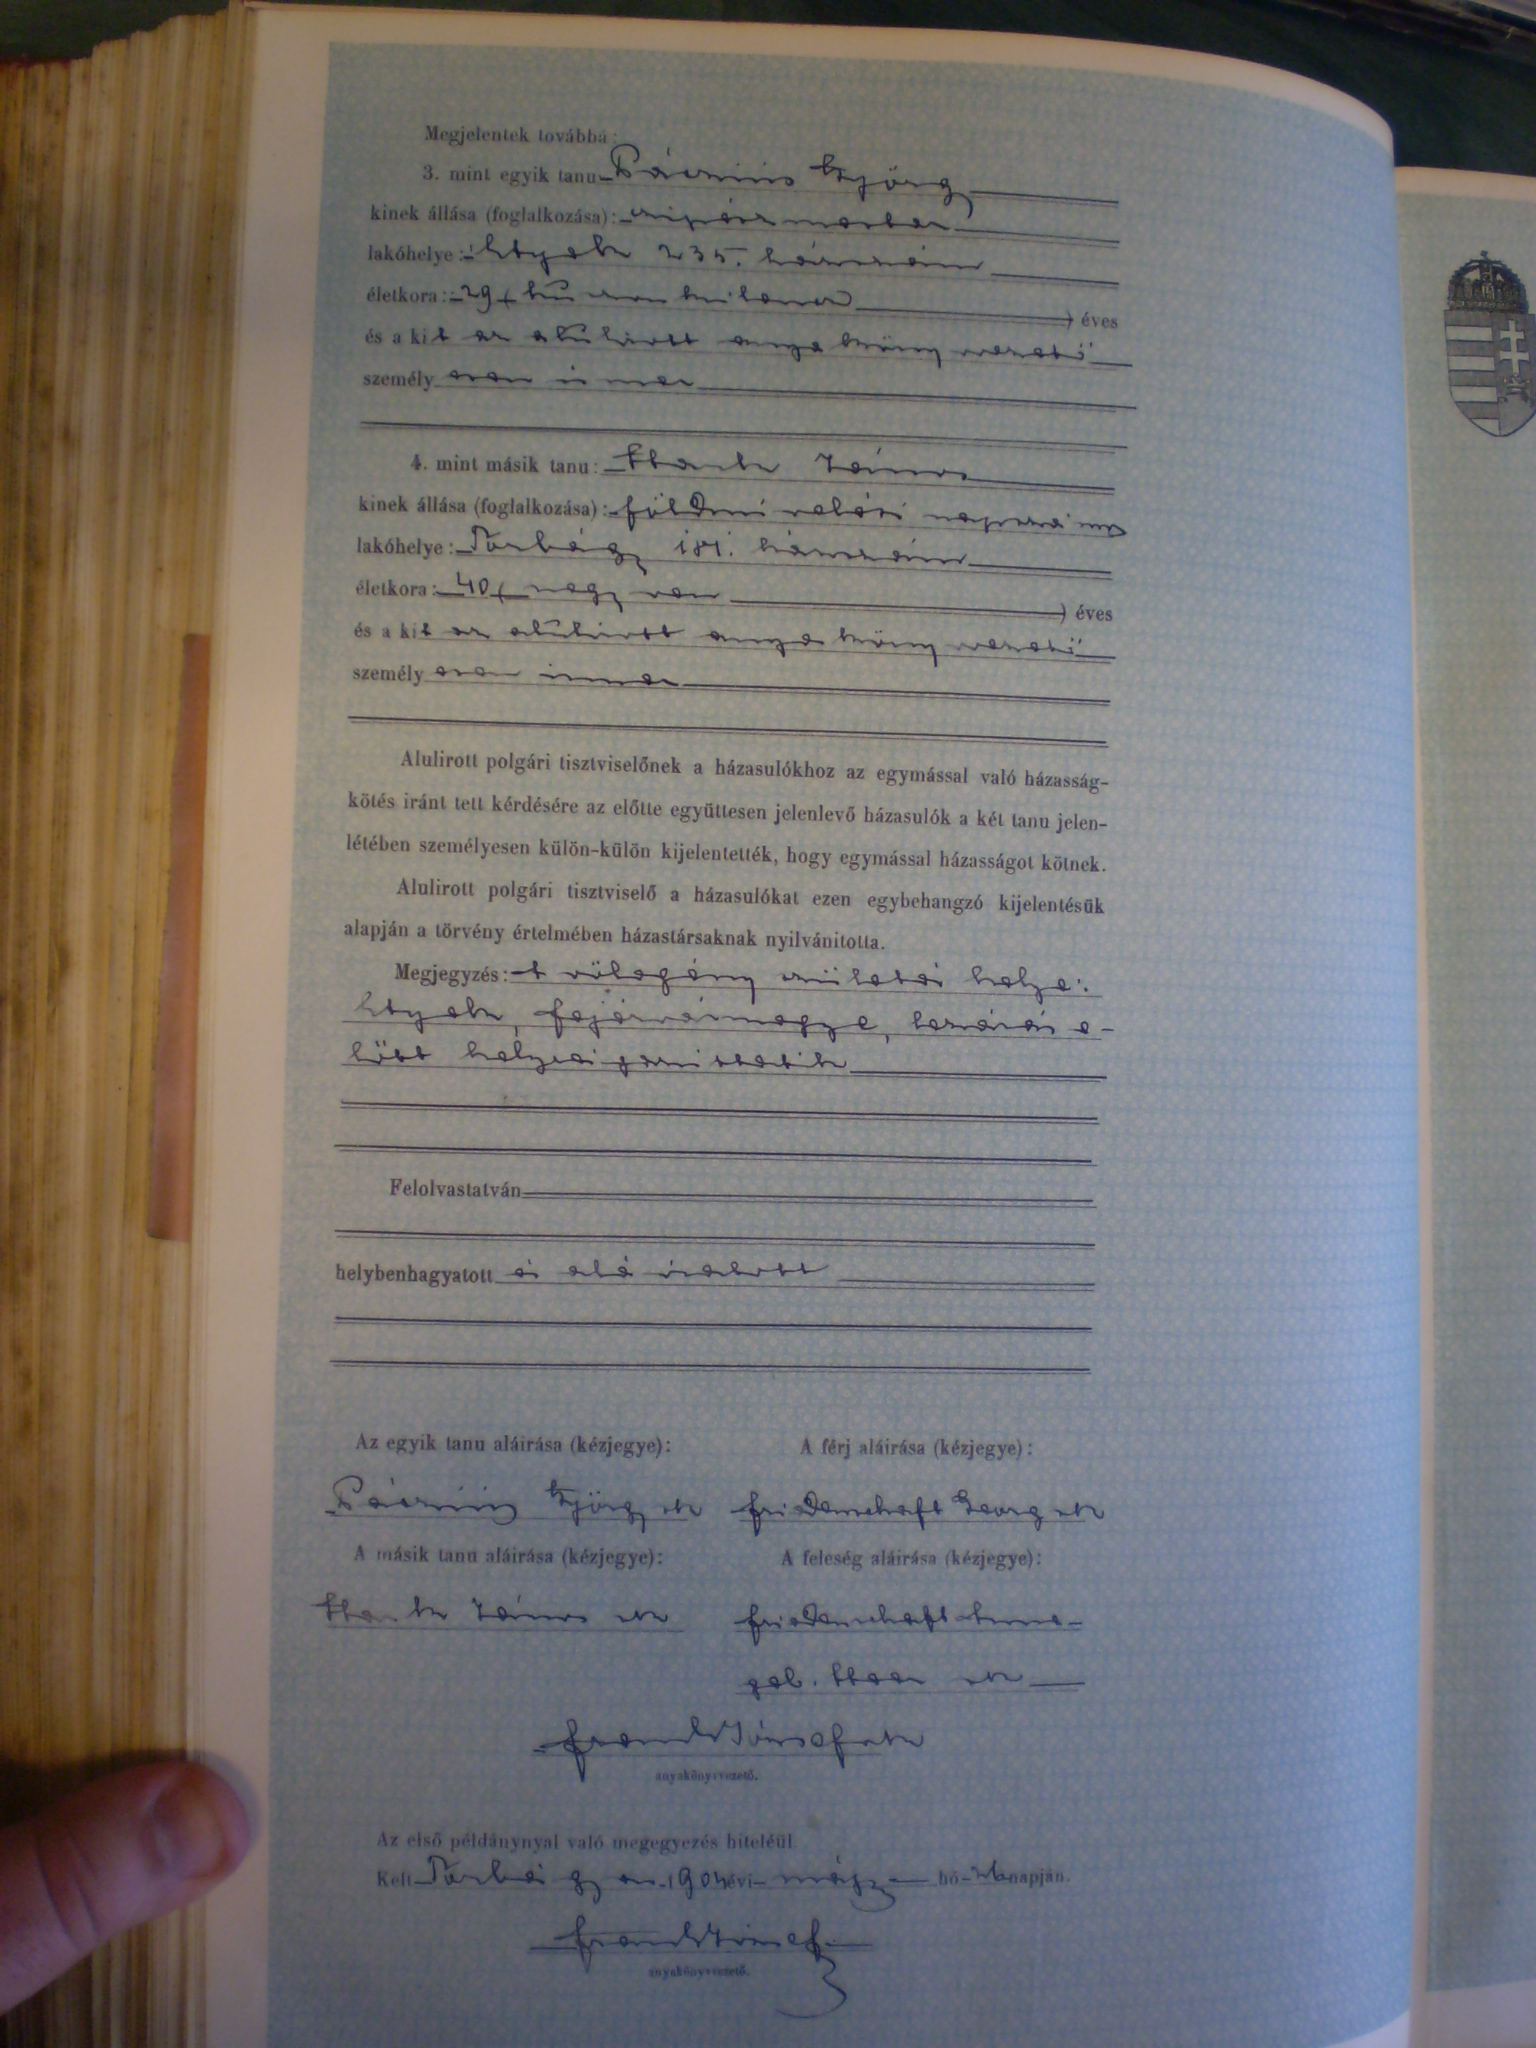 Megjelentek továbbá:
3. mint egyik tanu György
kinek állása (foglalkozása): cipész mester
lakóhelye: Etyek 235. házszám
életkora: 29 ( huszonkilenc ) éves
és a kit az alulirott anyakönyvvezető
személyesen ismer
4. mint másik tanu: János
kinek állása (foglalkozása): földmivelési napszámos
lakóhelye: Torbágy 181. házszám
életkora: 40 ( negyven ) éves
és a kit az alulirott anyakönyvvezető
személyesen ismer
Alulirott polgári tisztviselőnek a házasulókhoz az egymással való házasság-
kötés iránt tett kérdésére az előtte együttesen jelenlevő házasulók a két tanu jelen-
létében személyesen külön-külön kijelentették, hogy egymással házasságot kötnek.
Alulirott polgári tisztviselő a házasulókat ezen egybehangzó kijelentésük
alapján a törvény értelmében házastársaknak nyilvánitotta.
Megjegyzés: A vőlegény születési helye:
Etyek, Fejérvármegye, lezárás e-
lőtt helyreigazittatik
Felolvastatván
helybenhagyatott és aláiratott
Az egyik tanu aláirása (kézjegye): A férj aláirása (kézjegye):
György sk Friedenschaft Georg sk
A másik tanu aláirása (kézjegye): A feleség aláirása (kézjegye):
János sk Friedenschaft Anna
geb. Haas sk
József sk
anyakönyvvezető.
Az első példánynyal való megegyezés hiteléül
Kelt Torbágy az 1904 évi május hó napján.
József
anyakönyvvezető.